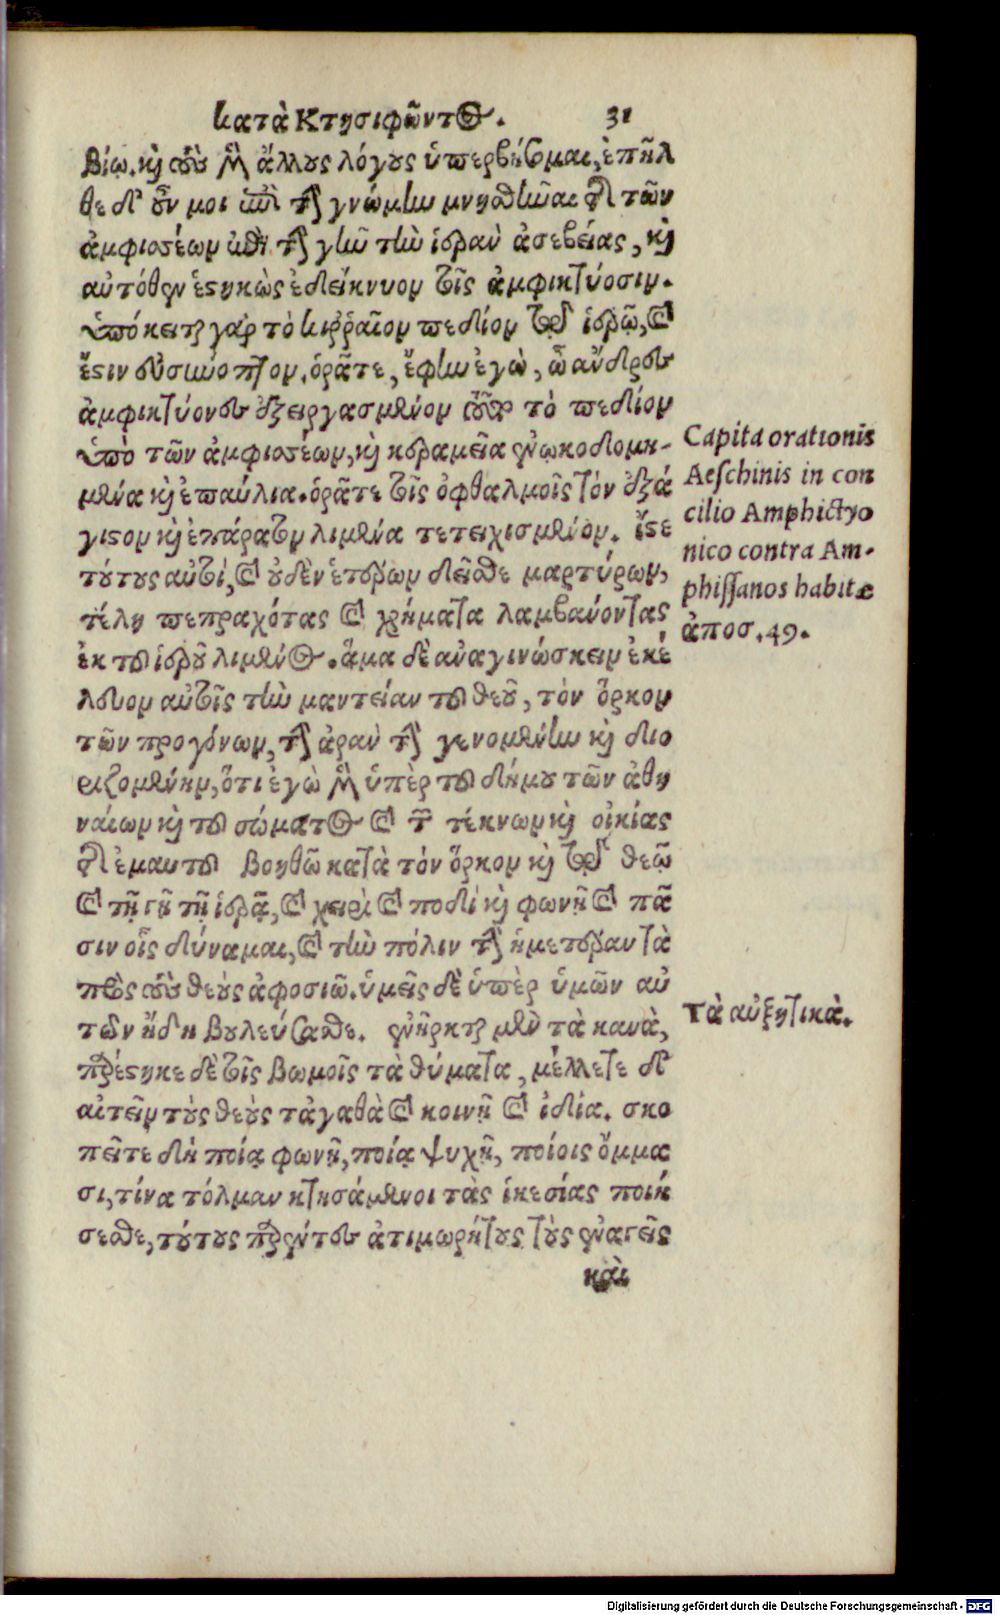 κατὰ Κτησιφῶντος. 31
βίῳ. καὶ τοὺς μὲν ἄλλους λόγους ὑπερβήσομαι, ἐπῆλ
θε δ' οὖν μοι ἐπὶ τὴν γνώμην μνησθῆναι τῆς τῶν
ἀμφισσέων περὶ τὴν γῆν τὴν ἱερὰν ἀσεβείας, καὶ
αὐτόθεν ἑστηκὼς ἐδείκνυον τοῖς ἀμφικτύοσιν.
ὑπόκειται γὰρ τὸ κιῤῥαῖον πεδίον τῷ ἱερῷ, καὶ
ἔστιν εὐσύνοπτον. ὁρᾶτε, ἔφην ἐγὼ, ὦ ἄνδρες
ἀμφικτύονες ἐξειργασμένον τοῦτο τὸ πεδίον
ὑπὸ τῶν ἀμφισσέων, καὶ κεραμεῖα ἐνῳκοδομη-
μένα καὶ ἐπαύλια. ὁρᾶτε τοῖς ὀφθαλμοῖς τὸν ἐξά
γιστον καὶ ἐπάρατον λιμένα τετειχισμένον. ἴστε
τούτους αὐτοί, καὶ οὐδὲν ἑτέρων δεῖσθε μαρτύρων,
τέλη πεπραχότας καὶ χρήματα λαμβάνοντας
ἐκ τοῦ ἱεροῦ λιμένος. ἅμα δὲ ἀναγινώσκειν ἐκέ
λευον αὐτοῖς τὴν μαντείαν τοῦ θεοῦ, τὸν ὅρκον
τῶν προγόνων, τὴν ἀρὰν τὴν γενομένην καὶ διο
ριζομένην, ὅτι ἐγὼ μὲν ὑπὲρ τοῦ δήμου τῶν ἀθη
ναίων καὶ τοῦ σώματος καὶ τῶν τέκνων καὶ οἰκίας
τῆς ἐμαυτοῦ βοηθῶ κατὰ τὸν ὅρκον καὶ τῷ θεῷ
καὶ τῇ γῇ τῇ ἱερᾷ, καὶ χειρὶ καὶ ποδὶ καὶ φωνῇ καὶ πᾶ
σιν οἷς δύναμαι, καὶ τὴν πόλιν τὴν ἡμετέραν τὰ
πρὸς τοὺς θεοὺς ἀφοσιῶ. ὑμεῖς δὲ ὑπὲρ ὑμῶν αὐ
τῶν ἤδη βουλεύσασθε. ἐνῆρκται μὲν τὰ κανὰ,
παρέστηκε δὲ τοῖς βωμοῖς τὰ θύματα, μέλλετε δ'
αἰτεῖν τοὺς θεοὺς τἀγαθὰ καὶ κοινῇ καὶ ἰδίᾳ. σκο
πεῖτε δὴ ποίᾳ φωνῇ, ποίᾳ ψυχῇ, ποίοις ὄμμα
σι, τίνα τόλμαν κτησάμενοι τὰς ἱκεσίας ποιή
σεσθε, τούτους παρέντες ἀτιμωρήτους τοὺς ἐναγεῖς
καὶ
Capita orationis
Aeschinis in con
cilio Amphictyo
nico contra Am-
phissanos habitæ
ἀποσ. 49.
Τὰ αὐξητικὰ.
Digitalisierung gefördert durch die Deutsche Forschungsgemeinschaft - DFG